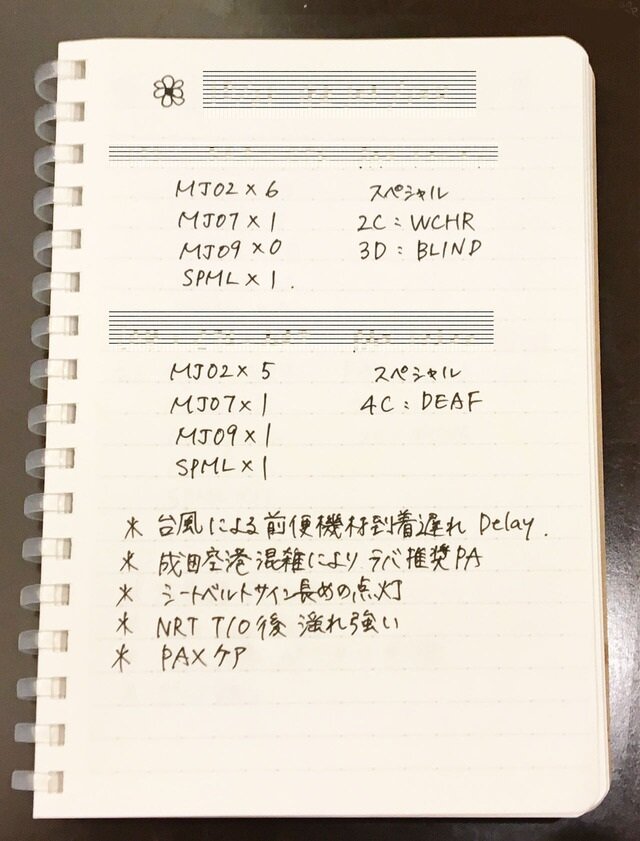 MJ02×6 スペシャル
MJ07×1 2C:WCHR
MJ09×0 3D:BLIND
SPML×1.
MJ02×5 スペシャル
MJ07×1 4C:DEAF
MJ09×1
SPML×1
* 台風による前便機材到着遅れ Delay.
* 成田空港混雑により ラバ推奨PA
* シートベルトサイン長めの点灯
* NRT T/O後 揺れ強い
* PAXケア